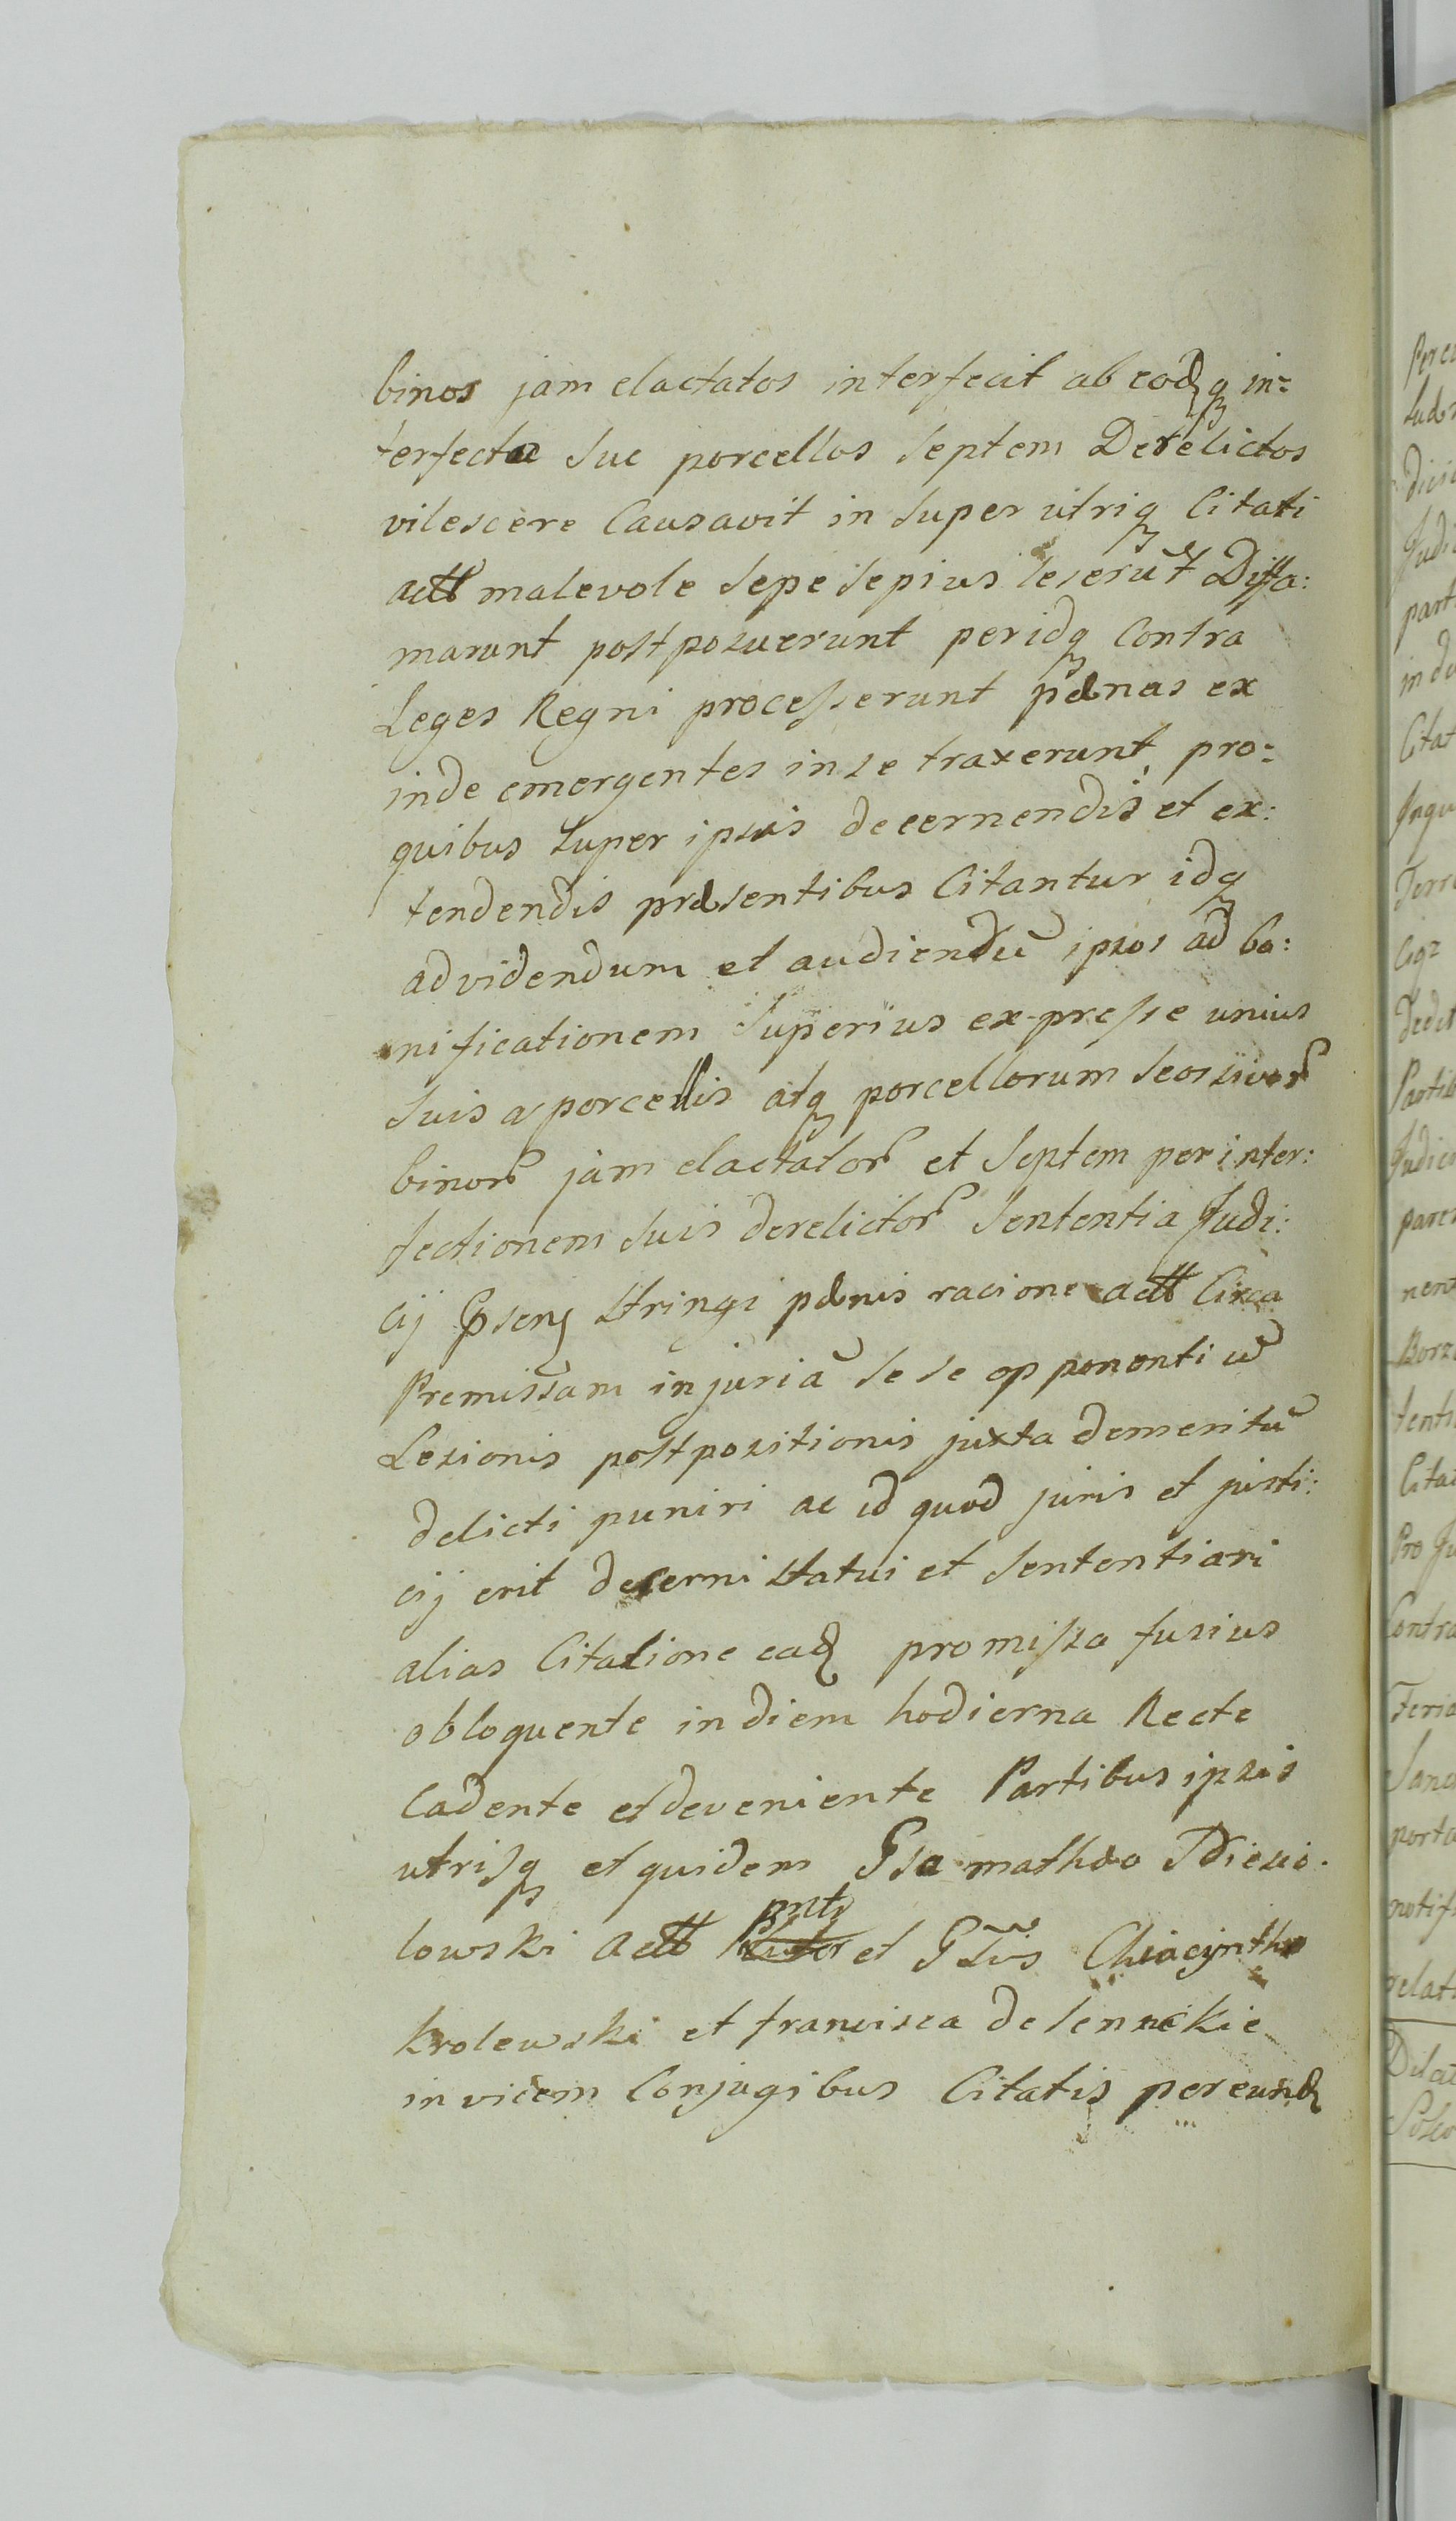 binos jam elactatos interfecit ab eodq in=
terfecta Sue porcellos Septem Derelictos
vilescere Causavit in Super utriq Citati
act malevole sepe sepius leserūt Diffa:
marunt postposuerunt peridq Contra
Leges Regni processerunt pænas ex
inde emergentes in se traxerunt, pro=
quibus super ipsis decernendis et ex:
tendendis præsentibus Citantur idq
ad videndum et audiendū ipsos ad bo:
nificationem Superius ex-presse unius
Suis a porcellis atq porcellorum seorsivor
binor jam elactator et Septem per inter:
fectionem Suis derelictor Sententia Judi:
cij sring stringi pænis racione act Circa
Premissam injuriā se se opponenti
Lesionis postpositionis juxta demeritū
delicti puniri ac id quod juris et justi:
cij erit decerni statui et Sententiari
alias Citatione ead promissa fusius
obloquente in diem hodierna Recte
Cadente et deveniente Partibus ipsis
utrisq et quidem Gso mathæo Dziesio.
lowski Act pnte et Gsis Chiacyntho
Krolewski et francisca de lennckie
in vicem Conjugibus Citatis per eund

Perce
tud
dici
Judi
part
in d
Citat
Inqu
Terr
dedit
Partib
Judici
pare
nent
Borz
tenti
Cita
Pro Ju
Contra
Feria
Sanc
porta
notifi
relat
Dilat